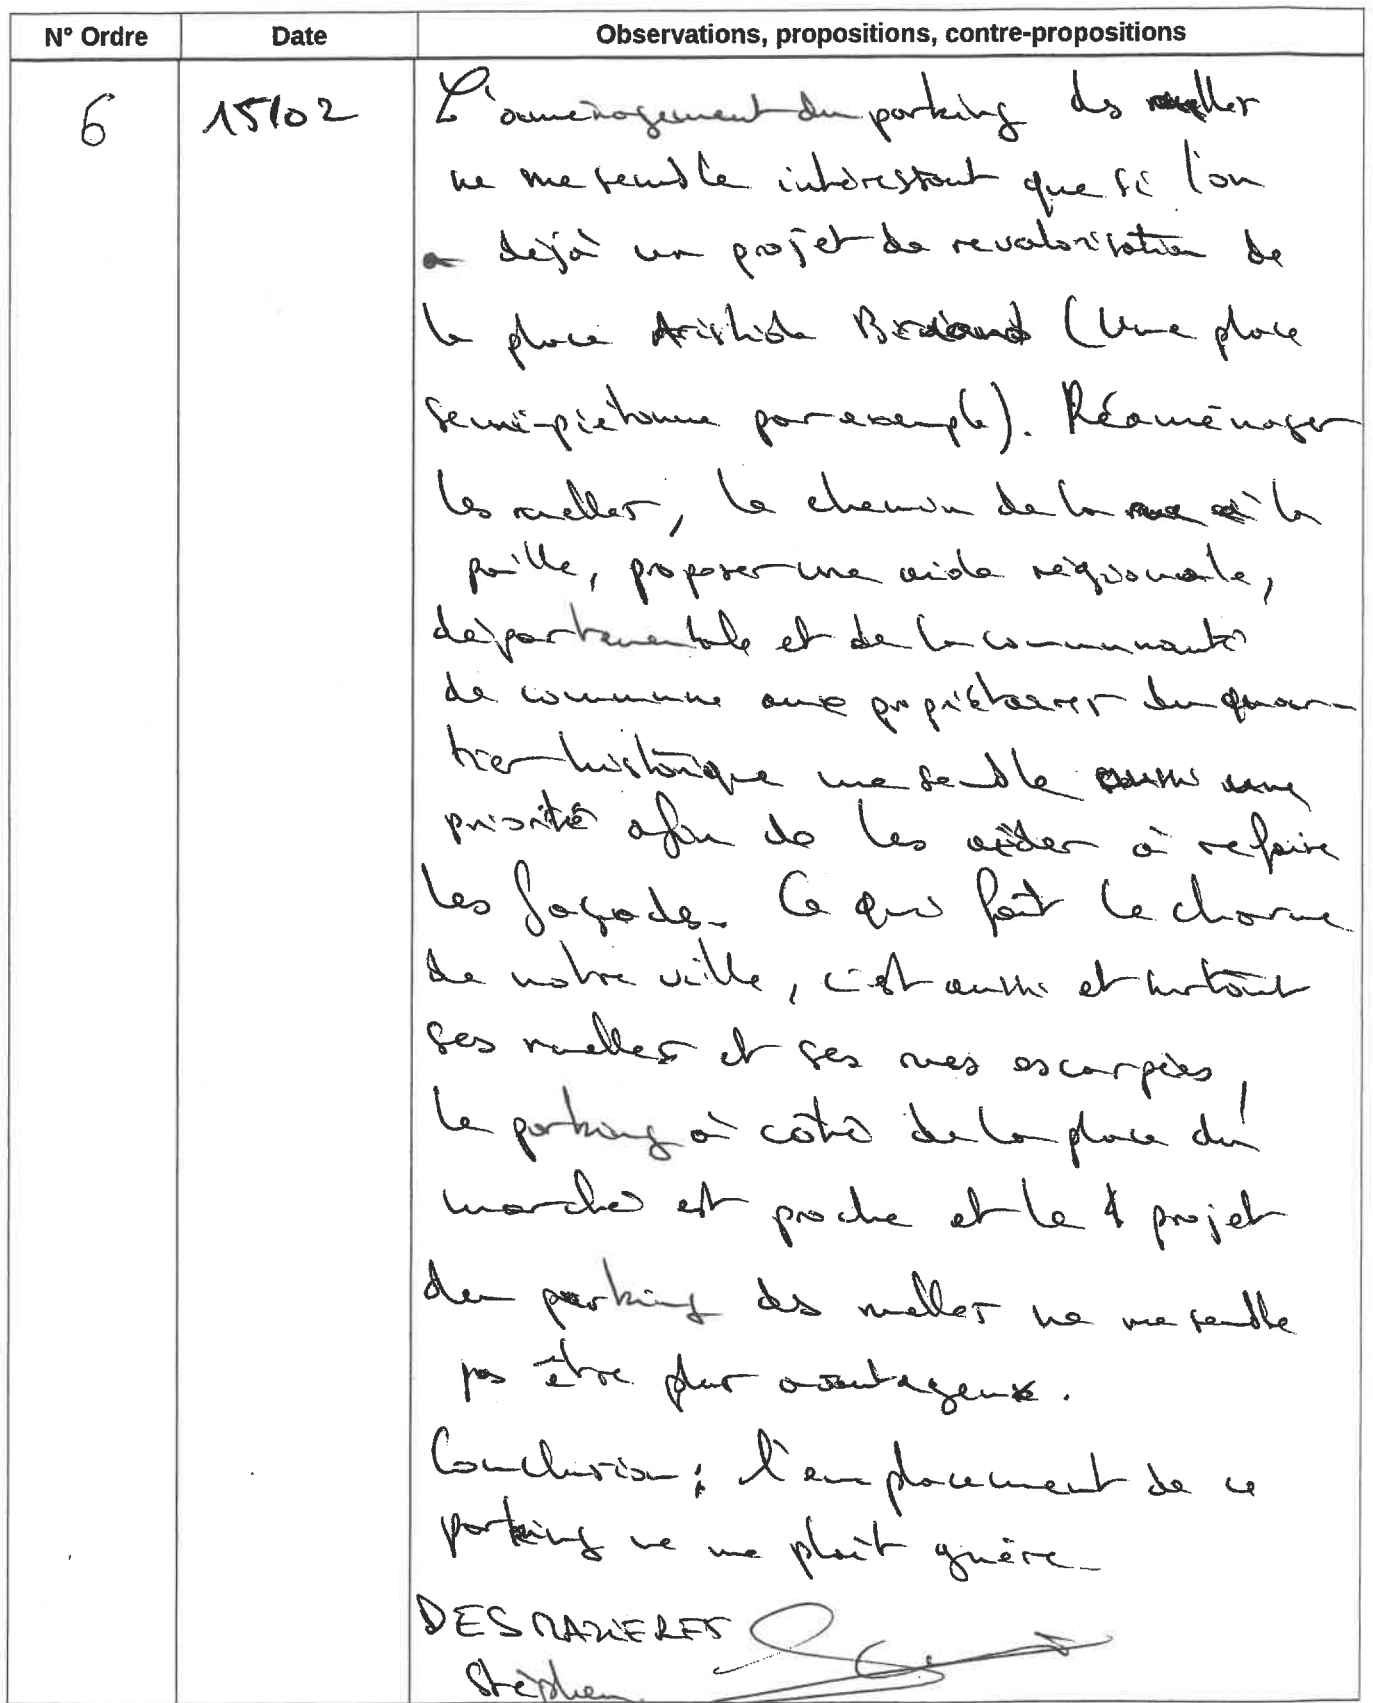 N° Ordre Date Observations, propositions, contre-propositions
6 15/02 L'aménagement du parking des ruelles
ne me semble intéressant que si l'on
a déjà un projet de revalorisation de
la place Aristide Briand (Une place
semi-piétonne par exemple). Réaménager
les ruelles, le chemin de la rue à la
paille, proposer une aide régionale,
départementale et de la communauté
de commune aux propriétaires du quar-
tier historique me semble aussi une
priorité afin de les aider à refaire
les façades. Ce qui fait le charme
de notre ville, c'est aussi et surtout
ses ruelles et ses rues escarpées,
le parking à côté de la place du
marché est proche et le projet
du parking des ruelles ne me semble
pas être plus avantageux.
Conclusion : l'emplacement de ce
parking ne me plaît guère.
DESMAZIERES
Stéphen